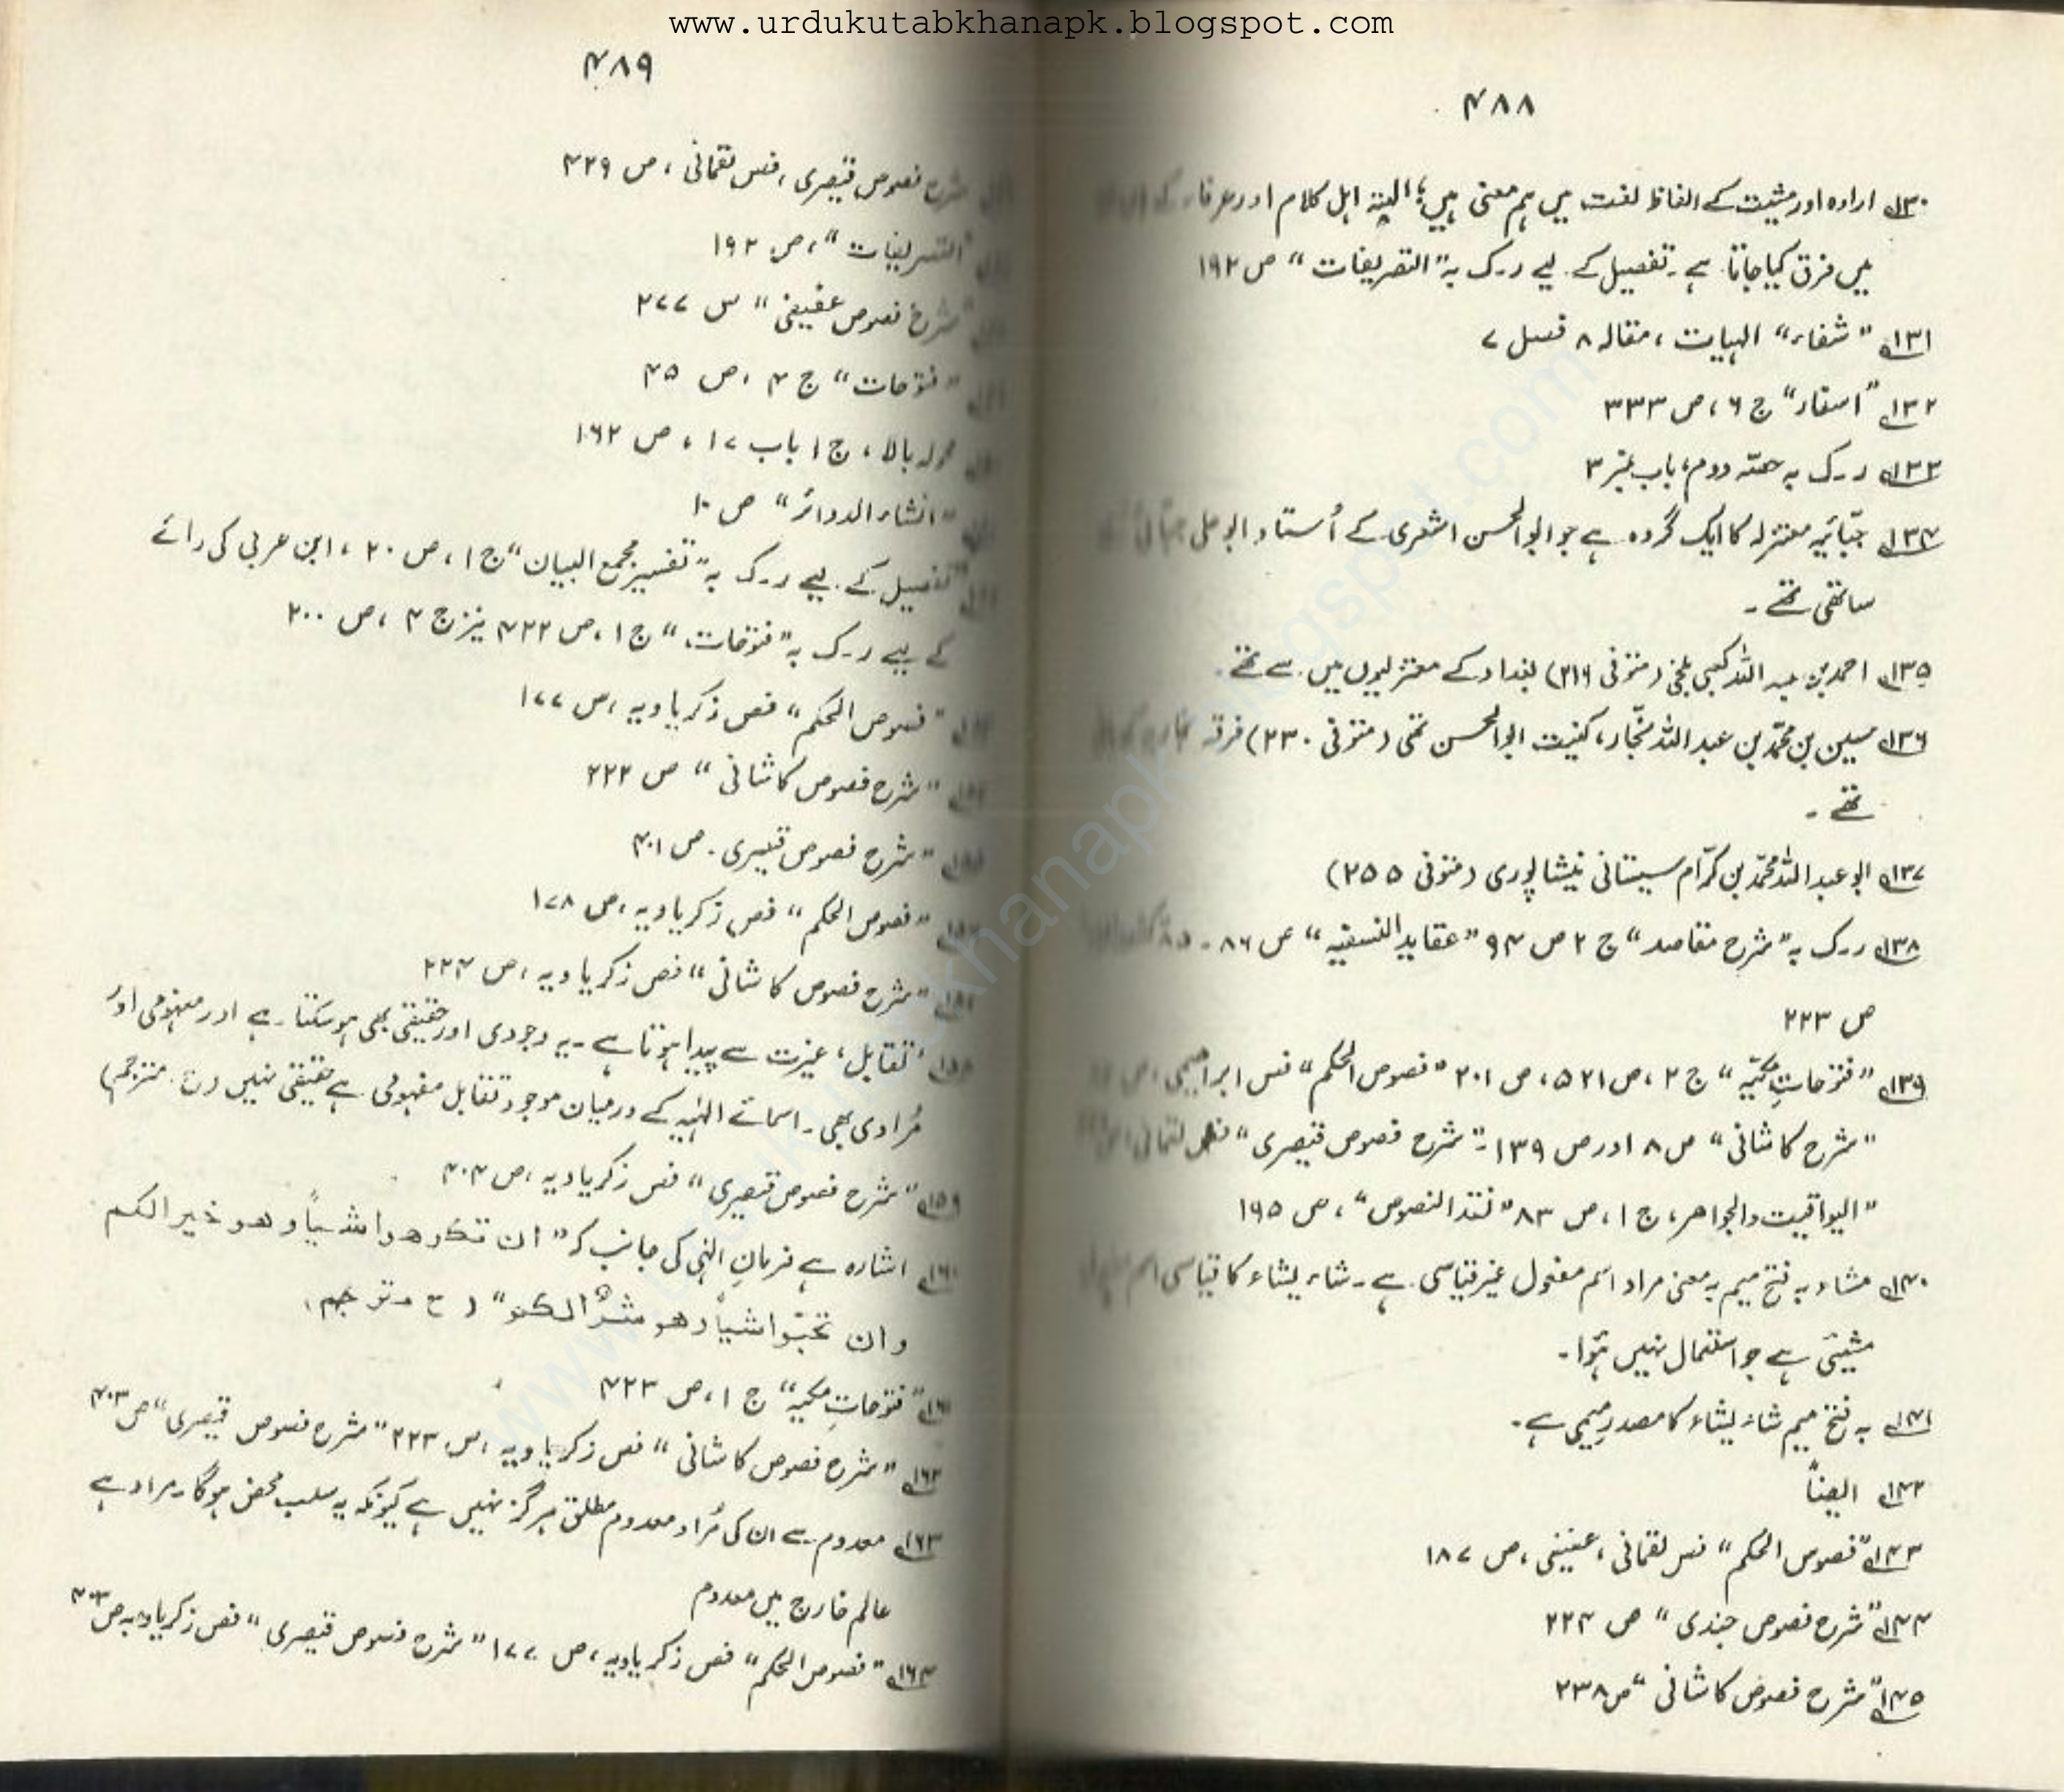 www.urdukutabkhanapk.blogspot.com
۴۸۸
۱۳۰؎ ارادہ اور مشیت کے الفاظ لغت میں ہم معنی ہیں؛ البتہ اہل کلام اور عرفاء کے
میں فرق کیا جاتا ہے۔ تفصیل کے لیے ر۔ک بہ "التعریفات" ص ۱۹۲
۱۳۱؎ "شفاء" الہیات، مقالہ ۸ فصل ۷
۱۳۲؎ "اسفار" ج ۶، ص ۳۳۳
۱۳۳؎ ر۔ک بہ حصّہ دوم، باب نمبر ۳
۱۳۴؎ جبّائیہ معتزلہ کا ایک گروہ ہے جو ابوالحسن اشعری کے اُستاد ابو علی جبّائی کے
ساتھی تھے۔
۱۳۵؎ احمد بن عبد اللہ کعبی بلخی (متوفی ۳۱۶) بغداد کے معتزلیوں میں سے تھے۔
۱۳۶؎ حسین بن محمّد بن عبد اللہ نجّار، کنیت ابوالحسن تھی (متوفی ۲۳۰) فرقہ
تھے۔
۱۳۷؎ ابو عبد اللہ محمّد بن کرّام سیستانی نیشاپوری (متوفی ۲۵۵)
۱۳۸؎ ر۔ک بہ "شرح مقاصد" ج ۲ ص ۹۴ "عقاید النسفیہ" ص ۸۶۔۸۵
ص ۲۲۳
۱۳۹؎ "فتوحاتِ مکّیہ" ج ۲، ص ۵۲۱، ص ۲۰۱ "فصوص الحکم" فص ابراہیمی، ص
"شرح کاشانی" ص ۸ اور ص ۱۳۹۔ "شرح فصوص قیصری" فص لقمانی، ص
"الیواقیت والجواہر، ج ۱، ص ۸۳ "نقد النصوص"، ص ۱۹۵
۱۴۰؎ مشاء بہ فتح میم بہ معنی مراد اسم مفعول غیر قیاسی ہے۔ شاء یشاء کا قیاسی اسم
مشیئ ہے جو استعمال نہیں ہُوا۔
۱۴۱؎ بہ فتح میم شاء یشاء کا مصدرِ میمی ہے۔
۱۴۲؎ ایضاً
۱۴۳؎ "فصوص الحکم" فص لقمانی، عفیفی، ص ۱۸۷
۱۴۴؎ "شرح فصوص جندی" ص ۲۲۴
۱۴۵؎ "شرح فصوص کاشانی" ص ۲۳۸
۴۸۹
شرح فصوص قیصری، فص لقمانی، ص ۴۲۹
"التعریفات"، ص ۱۹۲
"شرح فصوص عفیفی" ص ۲۷۷
"فتوحات" ج ۴، ص ۴۵
حولہ بالا، ج ۱ باب ۱۷، ص ۱۶۲
"انشاء الدوائر" ص ۱۰
تفصیل کے لیے ر۔ک بہ "تفسیر مجمع البیان" ج ۱، ص ۲۰، ابن عربی کی رائے
کے لیے ر۔ک بہ "فتوحات" ج ۱، ص ۴۲۲ نیز ج ۴، ص ۲۰۰
"فصوص الحکم" فص زکریاویہ، ص ۱۷۷
"شرح فصوص کاشانی" ص ۲۲۲
"شرح فصوص قیصری۔ ص ۴۰۱
"فصوص الحکم" فص زکریاویہ، ص ۱۷۸
"شرح فصوص کاشانی" فص زکریاویہ، ص ۲۲۴
'تقابل' غیرت سے پیدا ہوتا ہے۔ یہ وجودی اور حقیقی بھی ہو سکتا ہے اور مفہومی اور
مُرادی بھی۔ اسمائے الہٰیہ کے درمیان موجود تقابل مفہومی ہے حقیقی نہیں مترجم)
۱۵۹؎ "شرح فصوص قیصری" فص زکریاویہ، ص ۴۰۴
۱۶۰؎ اشارہ ہے فرمانِ الٰہی کی جانب کہ "ان تکرھوا شیأً وھو خیر الکم
وان تحبّوا شیأً وھو شرٌ الکم" ( ح مترجم)
۱۶۱؎ "فتوحاتِ مکیہ" ج ۱، ص ۴۲۳
۱۶۲؎ "شرح فصوص کاشانی" فص زکریاویہ، ص ۲۲۳ "شرح فصوص قیصری" ص ۴۰۳
۱۶۳؎ معدوم سے ان کی مُراد معدوم مطلق ہرگز نہیں ہے کیونکہ یہ سلب محض ہوگا۔ مراد ہے
عالمِ خارج میں معدوم
۱۶۴؎ "فصوص الحکم" فص زکریاویہ، ص ۱۷۷ "شرح فصوص قیصری" فص زکریاویہ ص ۴۰۳